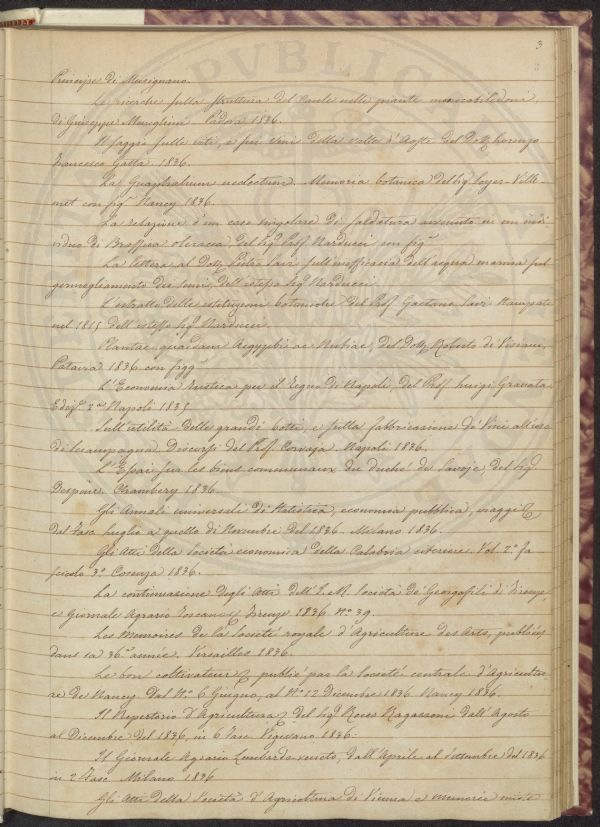 3
Principe di Musignano.
Le ricerche sulla struttura del caule nelle piante monocotiledoni,
di Giuseppe Meneghini Padova 1836.
Il saggio sulle viti, e sui vini della valle d'Aosta del Dott. Lorenzo
Francesco Gatta. 1836.
La Memoria botanica del Sig. Soyer-Wille-
met con fig. Nancy 1836.
La relazione d'un caso singolare di saldatura avvenuto in un indi-
viduo di Brassica oleracea del Sig. Prof. Narducci con fig.
La lettera al Dott. Pietro Savi sull'inefficacia dell'acqua marina sul
germogliamento dei semi, dell'istesso Sig. Narducci.
L'estratto delle istituzioni botaniche del Prof. Gaetano Savi stampate
nel 1815 dell'istesso Sig. Narducci.
Plantae quaedam Aegypti ac Nubiae, del Dott. Roberto di Visiani,
Patavia 1836 con figg.
L'Economia rustica per il Regno di Napoli, del Prof. Luigi Granata.
Ediz. 2a Napoli 1835.
Sull'utilità delle grandi botti, e sulla fabbricazione de' Vini all'uso
di Sciampagna. Discorsi del Prof. Napoli 1836.
L'Essai sur les biens communaux du duché de Savoje, del Sig.
Despine. Chambery 1836.
Gli Annali universali di statistica, economia pubblica, viaggi &
dal Fasc. Luglio a quello di Novembre del 1836 - Milano 1836.
Gli Atti della Società economica della Calabria citeriore. Vol. 2.° fa-
scicolo 3.° Cosenza 1836.
La continuazione degli Atti dell'I. e R. Società de' Georgofili di Firenze,
e Giornale Agrario Toscano & Firenze 1836 N.° 39.
Les Memoires de la Societé royale d'Agriculture des Arts, publiées
dans sa 36.e année. Versailles 1836.
Le bon cultivateur & publié par la Societé centrale d'Agricultu-
re de Nancy dal N.° 6 Giugno, al N.° 12 Dicembre 1836. Nancy 1836.
Il Repertorio d'Agricoltura & del Sig. Rocco Ragazzoni dall'Agosto
al Dicembre del 1836, in 6 Fasc. Vigevano 1836.
Il Giornale Agrario Lombardo-veneto, dall'Aprile al Settembre del 1836
in 2 Fasc. Milano 1836.
Gli Atti della Società d'Agricoltura di Vienna e memorie miste